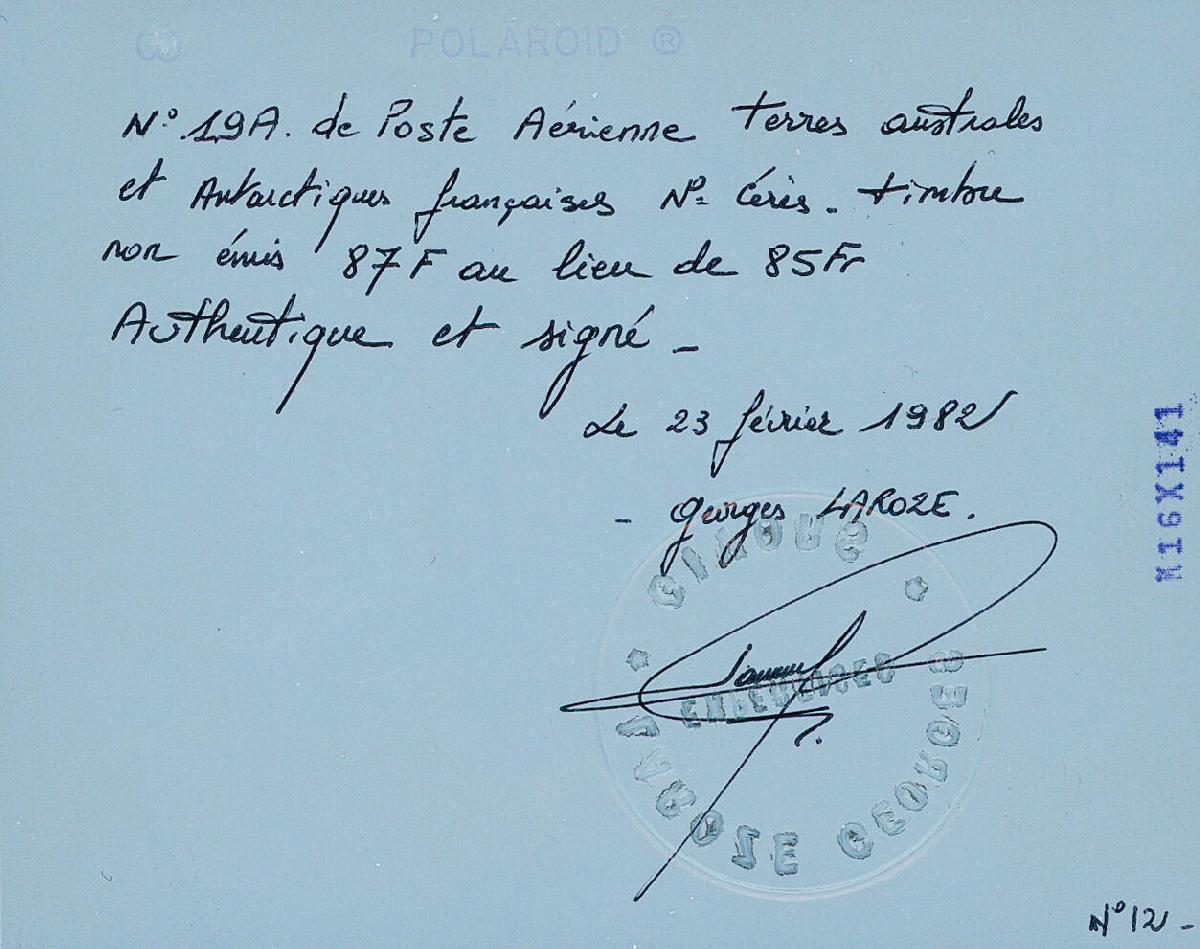 POLAROID ®
N° 19A. de Poste Aérienne Terres australes
et Antarctiques françaises N° Cérès. timbre
non émis 87F au lieu de 85Fr
Authentique et signé _
Le 23 février 1982
- Georges LAROZE.
GIROUS
EXPERTISES
LAROZE GEORGES
M16X141
N° 12 -